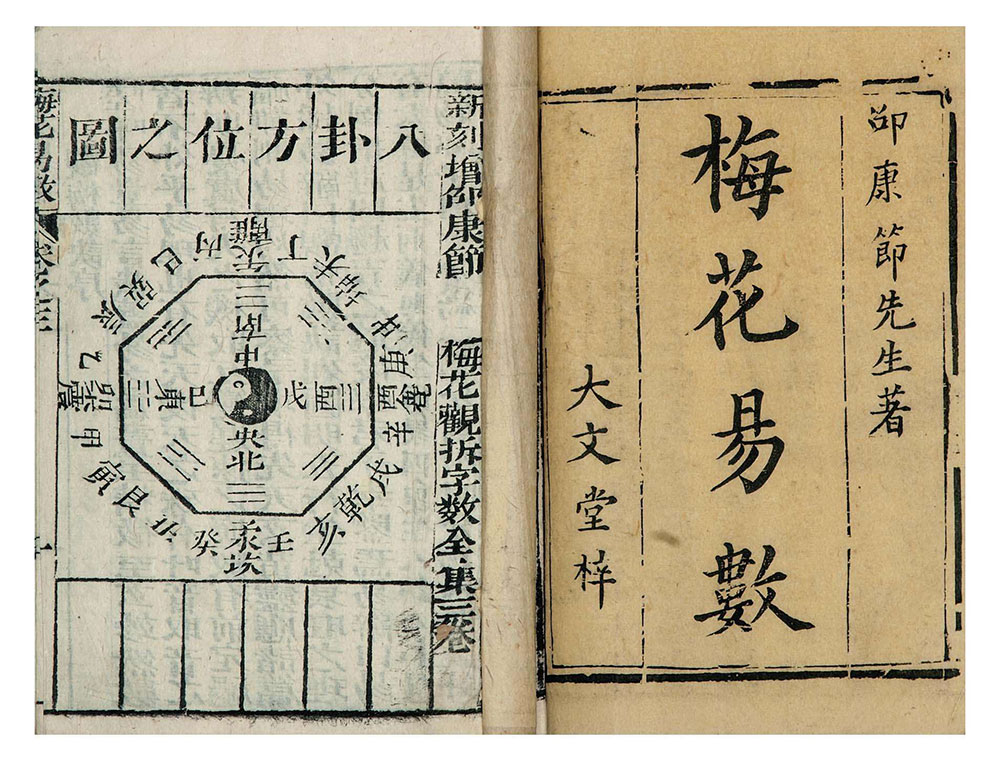 邵康節先生著
梅花易數
大文堂梓
新刻增邵康節 梅花觀拆字數全集三卷
八卦方位之圖
丙午丁
離
未坤申
庚酉辛
兌
戌乾亥
壬子癸
坎
丑艮寅
甲卯乙
震
辰巽巳
南
中
央
北
東
西
戊
巳
梅花易數
卷之三